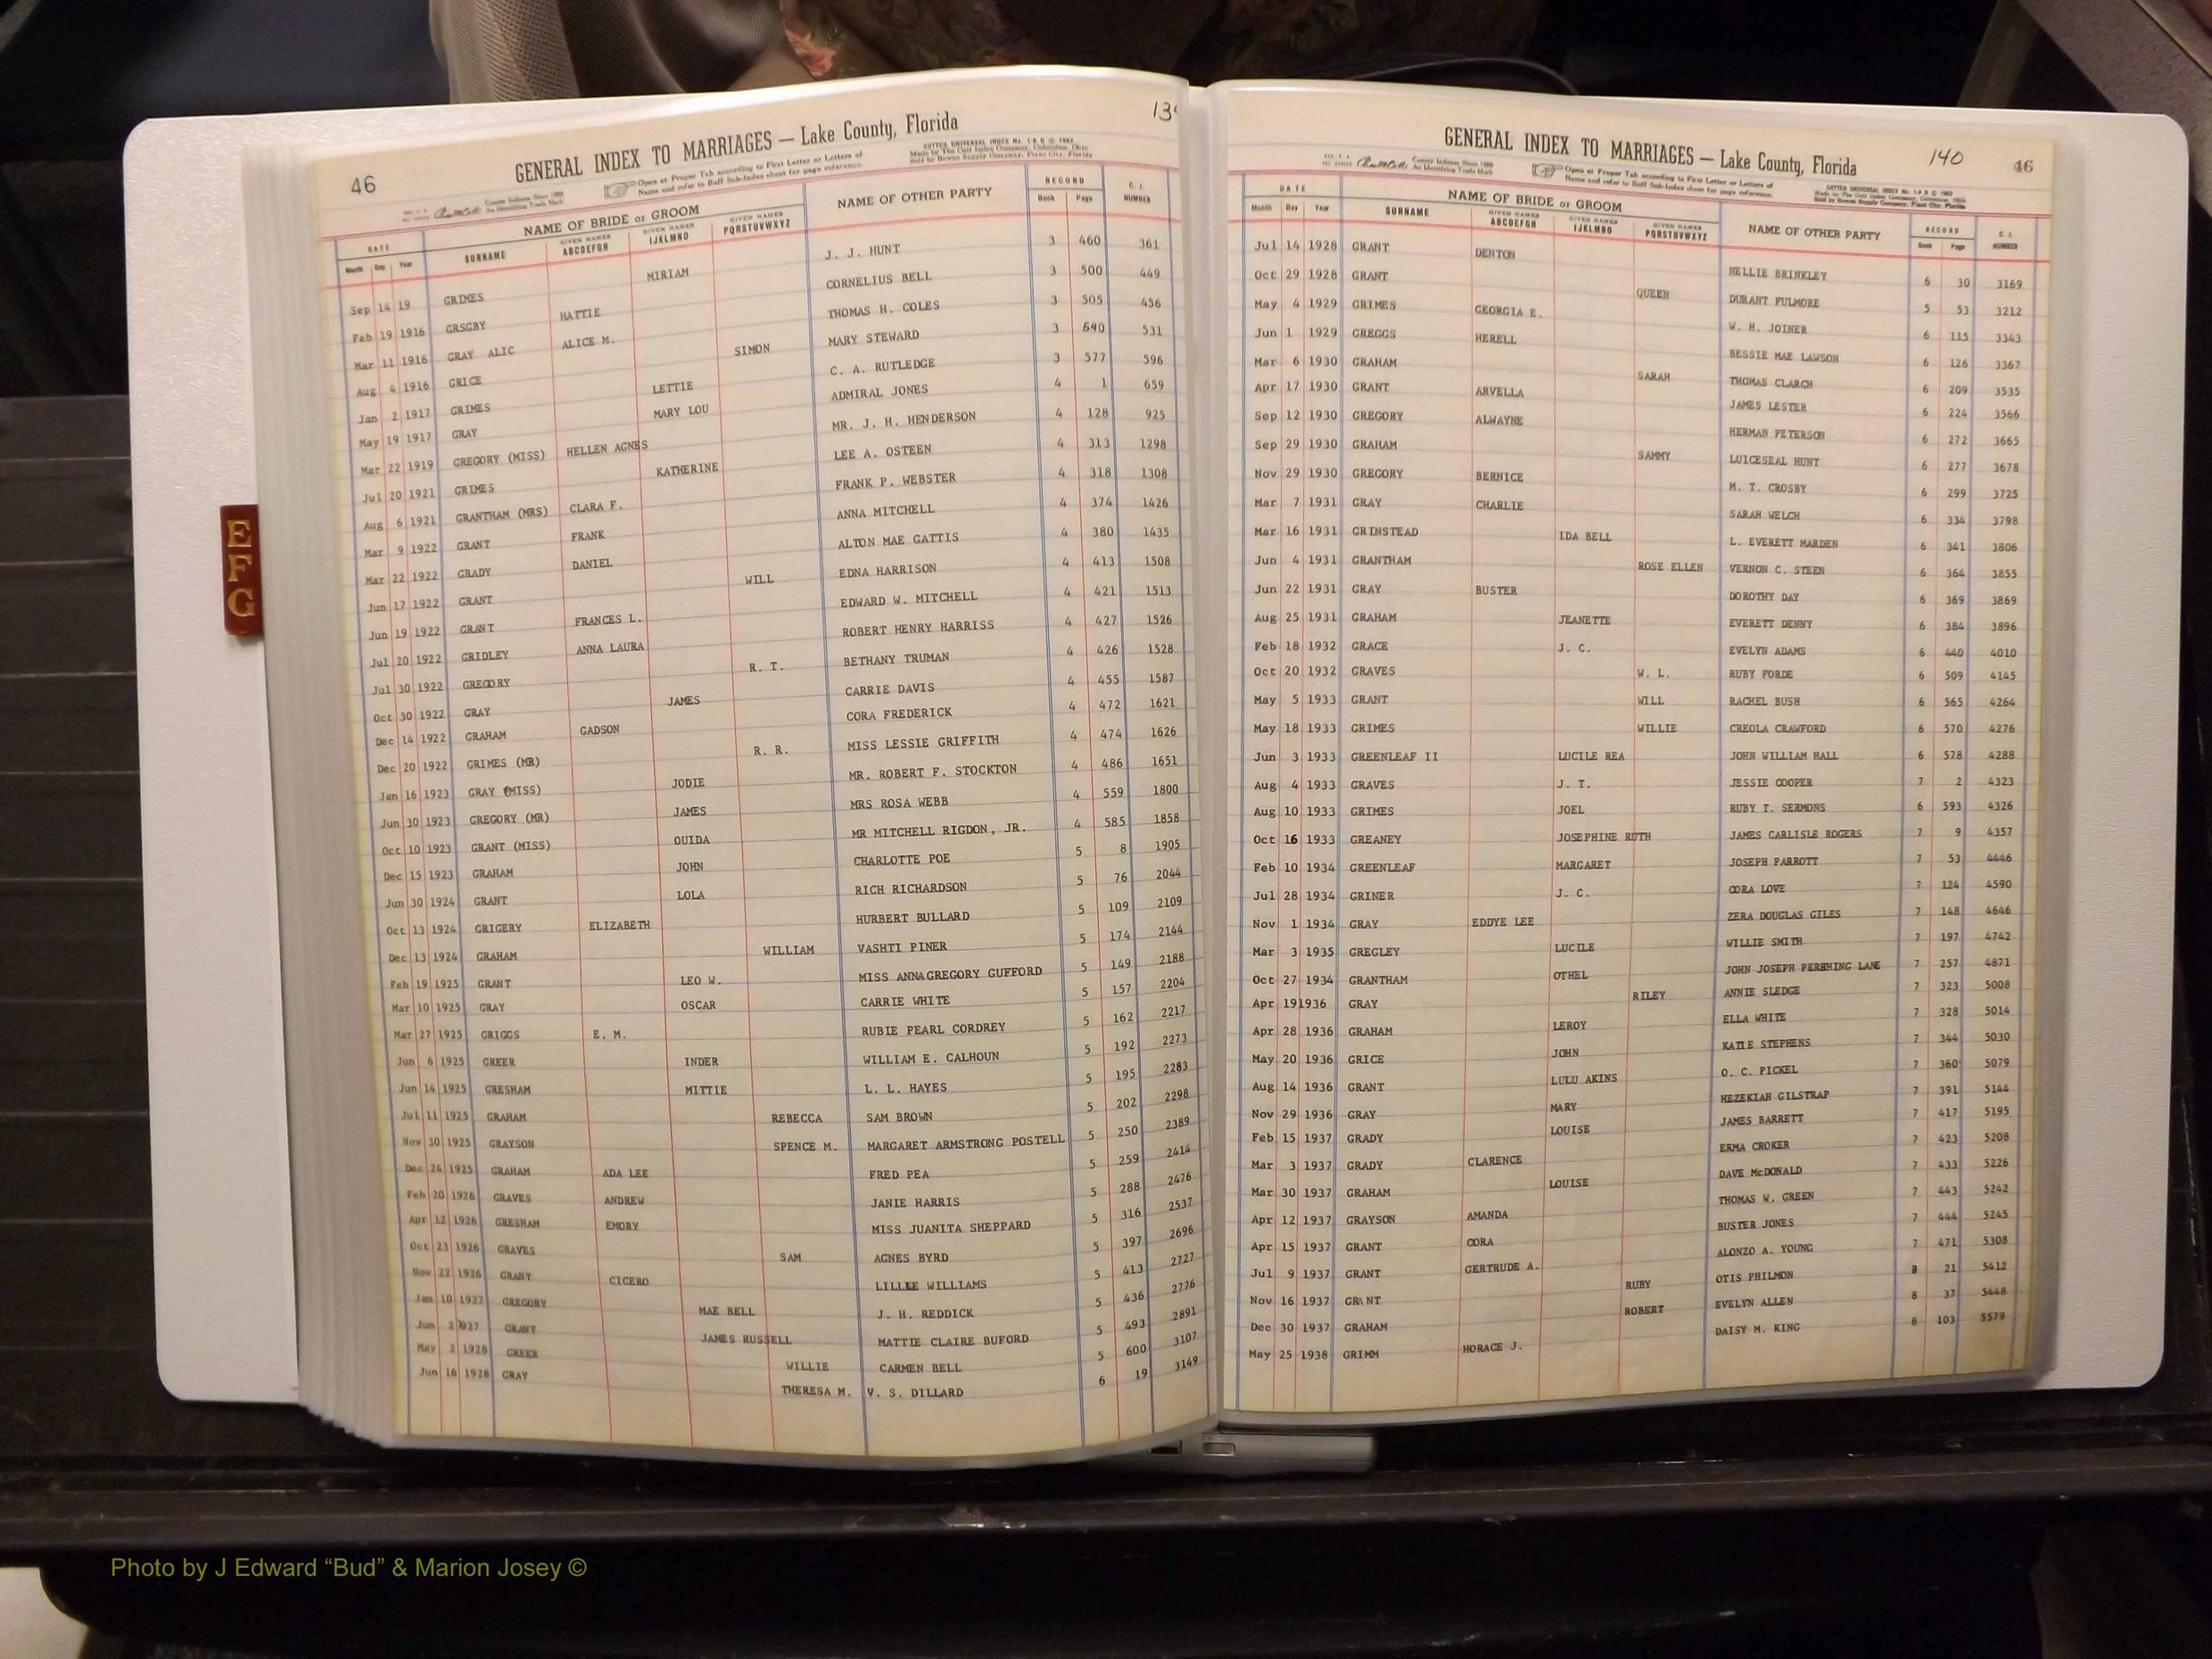 46
139
GENERAL INDEX TO MARRIAGES — Lake County, Florida
Open at Proper Tab according to First Letter or Letters of
Name and refer to Buff Sub-Index sheet for page reference.
DATE NAME OF BRIDE or GROOM NAME OF OTHER PARTY RECORD C. I. NUMBER
Month Day Year SURNAME GIVEN NAMES ABCDEFGH GIVEN NAMES IJKLMNO GIVEN NAMES PQRSTUVWXYZ Book Page
Sep 14 19 GRIMES MIRIAM J. J. HUNT 3 460 361
Feb 19 1916 GRSGBY HATTIE CORNELIUS BELL 3 500 449
Mar 11 1916 GRAY ALIC ALICE M. THOMAS H. COLES 3 505 456
Aug 4 1916 GRICE SIMON MARY STEWARD 3 540 531
Jan 2 1917 GRIMES LETTIE C. A. RUTLEDGE 3 577 596
May 19 1917 GRAY MARY LOU ADMIRAL JONES 4 1 659
Mar 22 1919 GREGORY (MISS) HELLEN AGNES MR. J. H. HENDERSON 4 128 925
Jul 20 1921 GRIMES KATHERINE LEE A. OSTEEN 4 313 1298
Aug 6 1921 GRANTHAM (MRS) CLARA F. FRANK P. WEBSTER 4 318 1308
Mar 9 1922 GRANT FRANK ANNA MITCHELL 4 374 1426
Mar 22 1922 GRADY DANIEL ALTON MAE GATTIS 4 380 1435
Jun 17 1922 GRANT WILL EDNA HARRISON 4 413 1508
Jun 19 1922 GRANT FRANCES L. EDWARD W. MITCHELL 4 421 1513
Jul 20 1922 GRIDLEY ANNA LAURA ROBERT HENRY HARRISS 4 427 1526
Jul 30 1922 GREGORY R. T. BETHANY TRUMAN 4 426 1528
Oct 30 1922 GRAY JAMES CARRIE DAVIS 4 455 1587
Dec 14 1922 GRAHAM GADSON CORA FREDERICK 4 472 1621
Dec 20 1922 GRIMES (MR) R. R. MISS LESSIE GRIFFITH 4 474 1626
Jan 16 1923 GRAY (MISS) JODIE MR. ROBERT F. STOCKTON 4 486 1651
Jun 30 1923 GREGORY (MR) JAMES MRS ROSA WEBB 4 559 1800
Oct 10 1923 GRANT (MISS) OUIDA MR MITCHELL RIGDON, JR. 4 585 1858
Dec 15 1923 GRAHAM JOHN CHARLOTTE POE 5 8 1905
Jun 30 1924 GRANT LOLA RICH RICHARDSON 5 76 2044
Oct 13 1924 GRIGERY ELIZABETH HURBERT BULLARD 5 109 2109
Dec 13 1924 GRAHAM WILLIAM VASHTI PINER 5 174 2144
Feb 19 1925 GRANT LEO W. MISS ANNAGREGORY GUFFORD 5 149 2188
Mar 10 1925 GRAY OSCAR CARRIE WHITE 5 157 2204
Mar 27 1925 GRIGGS E. M. RUBIE PEARL CORDREY 5 162 2217
Jun 6 1925 GREER INDER WILLIAM E. CALHOUN 5 192 2273
Jun 14 1925 GRESHAM MITTIE L. L. HAYES 5 195 2283
Jul 11 1925 GRAHAM REBECCA SAM BROWN 5 202 2298
Nov 30 1925 GRAYSON SPENCE M. MARGARET ARMSTRONG POSTELL 5 250 2389
Dec 24 1925 GRAHAM ADA LEE FRED PEA 5 259 2414
Feb 20 1926 GRAVES ANDREW JANIE HARRIS 5 288 2476
Apr 12 1926 GRESHAM EMORY MISS JUANITA SHEPPARD 5 316 2537
Oct 23 1926 GRAVES SAM AGNES BYRD 5 397 2696
Nov 22 1926 GRANT CICERO LILLIE WILLIAMS 5 413 2727
Jan 10 1927 GREGORY MAE BELL J. H. REDDICK 5 436 2776
Jun 2 1927 GRANT JAMES RUSSELL MATTIE CLAIRE BUFORD 5 493 2891
May 2 1928 GREER WILLIE CARMEN BELL 5 600 3107
Jun 16 1928 GRAY THERESA M. V. S. DILLARD 6 19 3149
E
F
G
140
46
GENERAL INDEX TO MARRIAGES — Lake County, Florida
Open at Proper Tab according to First Letter or Letters of
Name and refer to Buff Sub-Index sheet for page reference.
DATE NAME OF BRIDE or GROOM NAME OF OTHER PARTY RECORD C. I. NUMBER
Month Day Year SURNAME GIVEN NAMES ABCDEFGH GIVEN NAMES IJKLMNO GIVEN NAMES PQRSTUVWXYZ Book Page
Jul 14 1928 GRANT DENTON NELLIE BRINKLEY 6 30 3169
Oct 29 1928 GRANT QUEEN DURANT FULMORE 5 53 3212
May 4 1929 GRIMES GEORGIA E. W. H. JOINER 6 115 3343
Jun 1 1929 GREGGS HERELL BESSIE MAE LAWSON 6 126 3367
Mar 6 1930 GRAHAM SARAH THOMAS CLARCH 6 209 3535
Apr 17 1930 GRANT ARVELLA JAMES LESTER 6 224 3566
Sep 12 1930 GREGORY ALWAYNE HERMAN PETERSON 6 272 3665
Sep 29 1930 GRAHAM SAMMY LUICESEAL HUNT 6 277 3678
Nov 29 1930 GREGORY BERNICE M. T. CROSBY 6 299 3725
Mar 7 1931 GRAY CHARLIE SARAH WELCH 6 334 3798
Mar 16 1931 GRINSTEAD IDA BELL L. EVERETT MARDEN 6 341 3806
Jun 4 1931 GRANTHAM ROSE ELLEN VERNON C. STEEN 6 364 3855
Jun 22 1931 GRAY BUSTER DOROTHY DAY 6 369 3869
Aug 25 1931 GRAHAM JEANETTE EVERETT DENNY 6 384 3896
Feb 18 1932 GRACE J. C. EVELYN ADAMS 6 440 4010
Oct 20 1932 GRAVES W. L. RUBY FORDE 6 509 4145
May 5 1933 GRANT WILL RACHEL BUSH 6 565 4264
May 18 1933 GRIMES WILLIE CREOLA CRAWFORD 6 570 4276
Jun 3 1933 GREENLEAF II LUCILE REA JOHN WILLIAM HALL 6 578 4288
Aug 4 1933 GRAVES J. T. JESSIE COOPER 7 2 4323
Aug 10 1933 GRIMES JOEL RUBY T. SERMONS 6 593 4326
Oct 16 1933 GREANEY JOSEPHINE RUTH JAMES CARLISLE ROGERS 7 9 4357
Feb 10 1934 GREENLEAF MARGARET JOSEPH PARROTT 7 53 4446
Jul 28 1934 GRINER J. C. CORA LOVE 7 124 4590
Nov 1 1934 GRAY EDDYE LEE ZERA DOUGLAS GILES 7 148 4646
Mar 3 1935 GREGLEY LUCILE WILLIE SMITH 7 197 4742
Oct 27 1934 GRANTHAM OTHEL JOHN JOSEPH PERSHING LANE 7 257 4871
Apr 19 1936 GRAY RILEY ANNIE SLEDGE 7 323 5008
Apr 28 1936 GRAHAM LEROY ELLA WHITE 7 328 5014
May 20 1936 GRICE JOHN KATIE STEPHENS 7 344 5030
Aug 14 1936 GRANT LULU AKINS O. C. PICKEL 7 360 5079
Nov 29 1936 GRAY MARY HEZEKIAH GILSTRAP 7 391 5144
Feb 15 1937 GRADY LOUISE JAMES BARRETT 7 417 5195
Mar 3 1937 GRADY CLARENCE ERMA CROKER 7 423 5208
Mar 30 1937 GRAHAM LOUISE DAVE McDONALD 7 433 5226
Apr 12 1937 GRAYSON AMANDA THOMAS W. GREEN 7 443 5242
Apr 15 1937 GRANT CORA BUSTER JONES 7 444 5245
Jul 9 1937 GRANT GERTRUDE A. ALONZO A. YOUNG 7 471 5308
Nov 16 1937 GRANT RUBY OTIS PHILMON 8 21 5412
Dec 30 1937 GRAHAM ROBERT EVELYN ALLEN 8 37 5448
May 25 1938 GRIMM HORACE J. DAISY M. KING 8 103 5579
Photo by J Edward “Bud” & Marion Josey ©